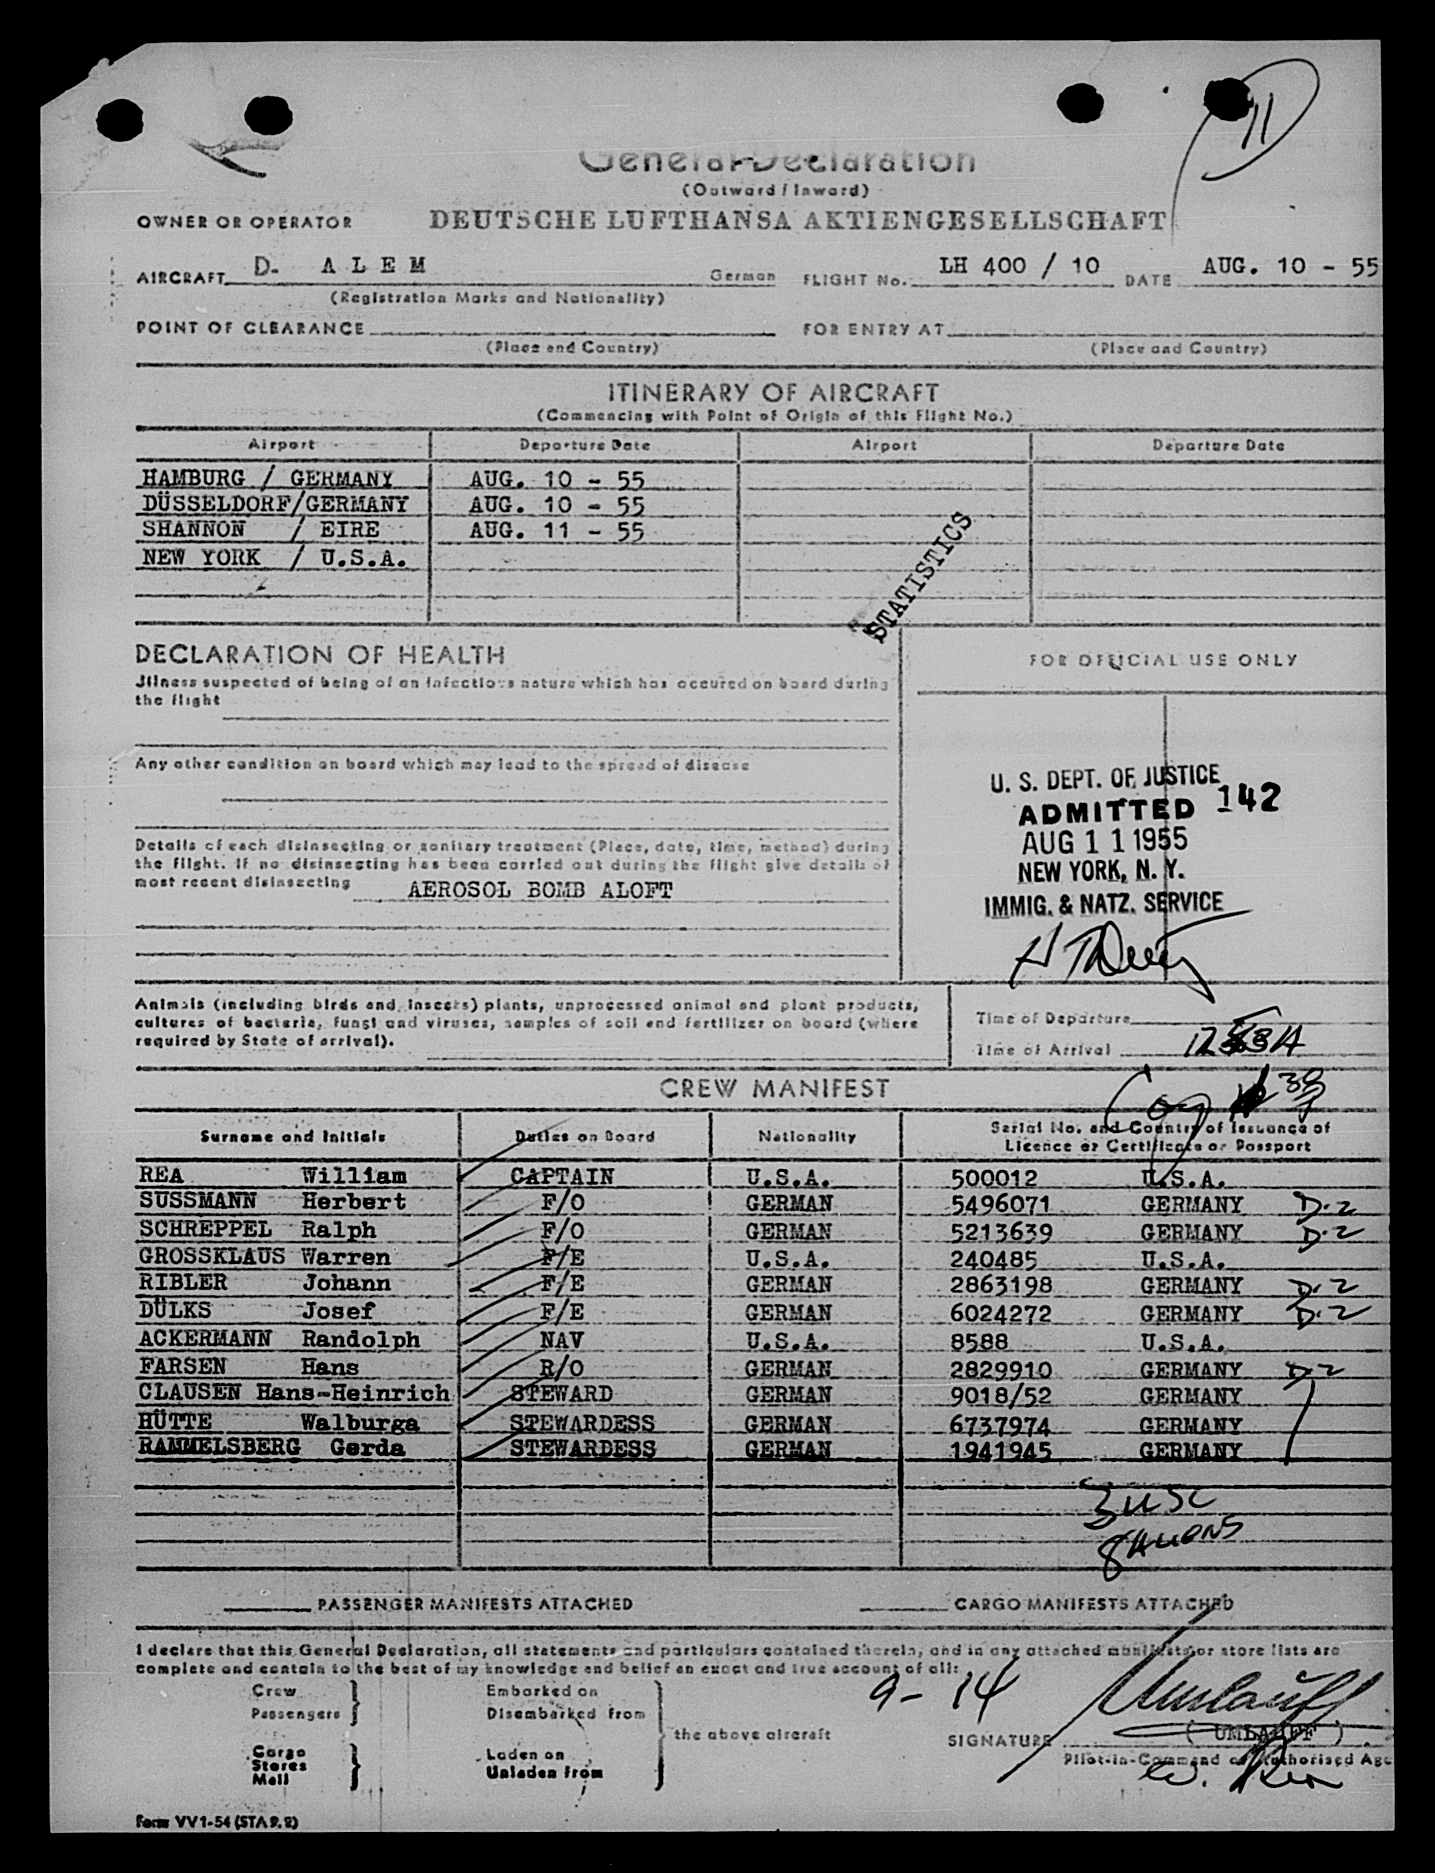 11
General Declaration
(Outward / Inward)
OWNER OR OPERATOR DEUTSCHE LUFTHANSA AKTIENGESELLSCHAFT
AIRCRAFT D. A L E M German FLIGHT No. LH 400 / 10 DATE AUG. 10 - 55
(Registration Marks and Nationality)
POINT OF CLEARANCE FOR ENTRY AT
(Place and Country) (Place and Country)
ITINERARY OF AIRCRAFT
(Commencing with Point of Origin of this Flight No.)
Airport Departure Date Airport Departure Date
HAMBURG / GERMANY AUG. 10 - 55
DÜSSELDORF/GERMANY AUG. 10 - 55
SHANNON / EIRE AUG. 11 - 55
NEW YORK / U.S.A.
STATISTICS
DECLARATION OF HEALTH
FOR OFFICIAL USE ONLY
Jllness suspected of being of an infectious nature which has occured on board during
the flight
Any other condition on board which may lead to the spread of disease
U. S. DEPT. OF JUSTICE
ADMITTED 142
AUG 11 1955
NEW YORK, N. Y.
IMMIG. & NATZ. SERVICE
Details of each disinsecting or sanitary treatment (Place, date, time, method) during
the flight. If no disinsecting has been carried out during the flight give details of
most recent disinsecting AEROSOL BOMB ALOFT
Animals (including birds and insects) plants, unprocessed animal and plant products,
cultures of bacteria, fungi and viruses, samples of soil and fertilizer on board (where
required by State of arrival).
Time of Departure
Time of Arrival
CREW MANIFEST
Surname and Initials Duties on Board Nationality Serial No. and Country of Issuance of
Licence or Certificate or Passport
REA William CAPTAIN U.S.A. 500012 U.S.A.
SUSSMANN Herbert F/O GERMAN 5496071 GERMANY D-2
SCHREPPEL Ralph F/O GERMAN 5213639 GERMANY D-2
GROSSKLAUS Warren F/E U.S.A. 240485 U.S.A.
RIBLER Johann F/E GERMAN 2863198 GERMANY D-2
DÜLKS Josef F/E GERMAN 6024272 GERMANY D-2
ACKERMANN Randolph NAV U.S.A. 8588 U.S.A.
FARSEN Hans R/O GERMAN 2829910 GERMANY D-2
CLAUSEN Hans-Heinrich STEWARD GERMAN 9018/52 GERMANY
HÜTTE Walburga STEWARDESS GERMAN 6737974 GERMANY
RAMMELSBERG Gerda STEWARDESS GERMAN 1941945 GERMANY
3 USC
8 ALIENS
PASSENGER MANIFESTS ATTACHED CARGO MANIFESTS ATTACHED
I declare that this General Declaration, all statements and particulars contained therein, and in any attached manifests or store lists are
complete and contain to the best of my knowledge and belief an exact and true account of all:
9-14
Crew Embarked on
Passengers Disembarked from
the above aircraft
Cargo Laden on
Stores Unladen from
Mail
SIGNATURE Umlauff
( UMLAUFF )
Pilot-in-Command or Authorised Age
W. Rea
Form VV1-54 (STA 9.2)